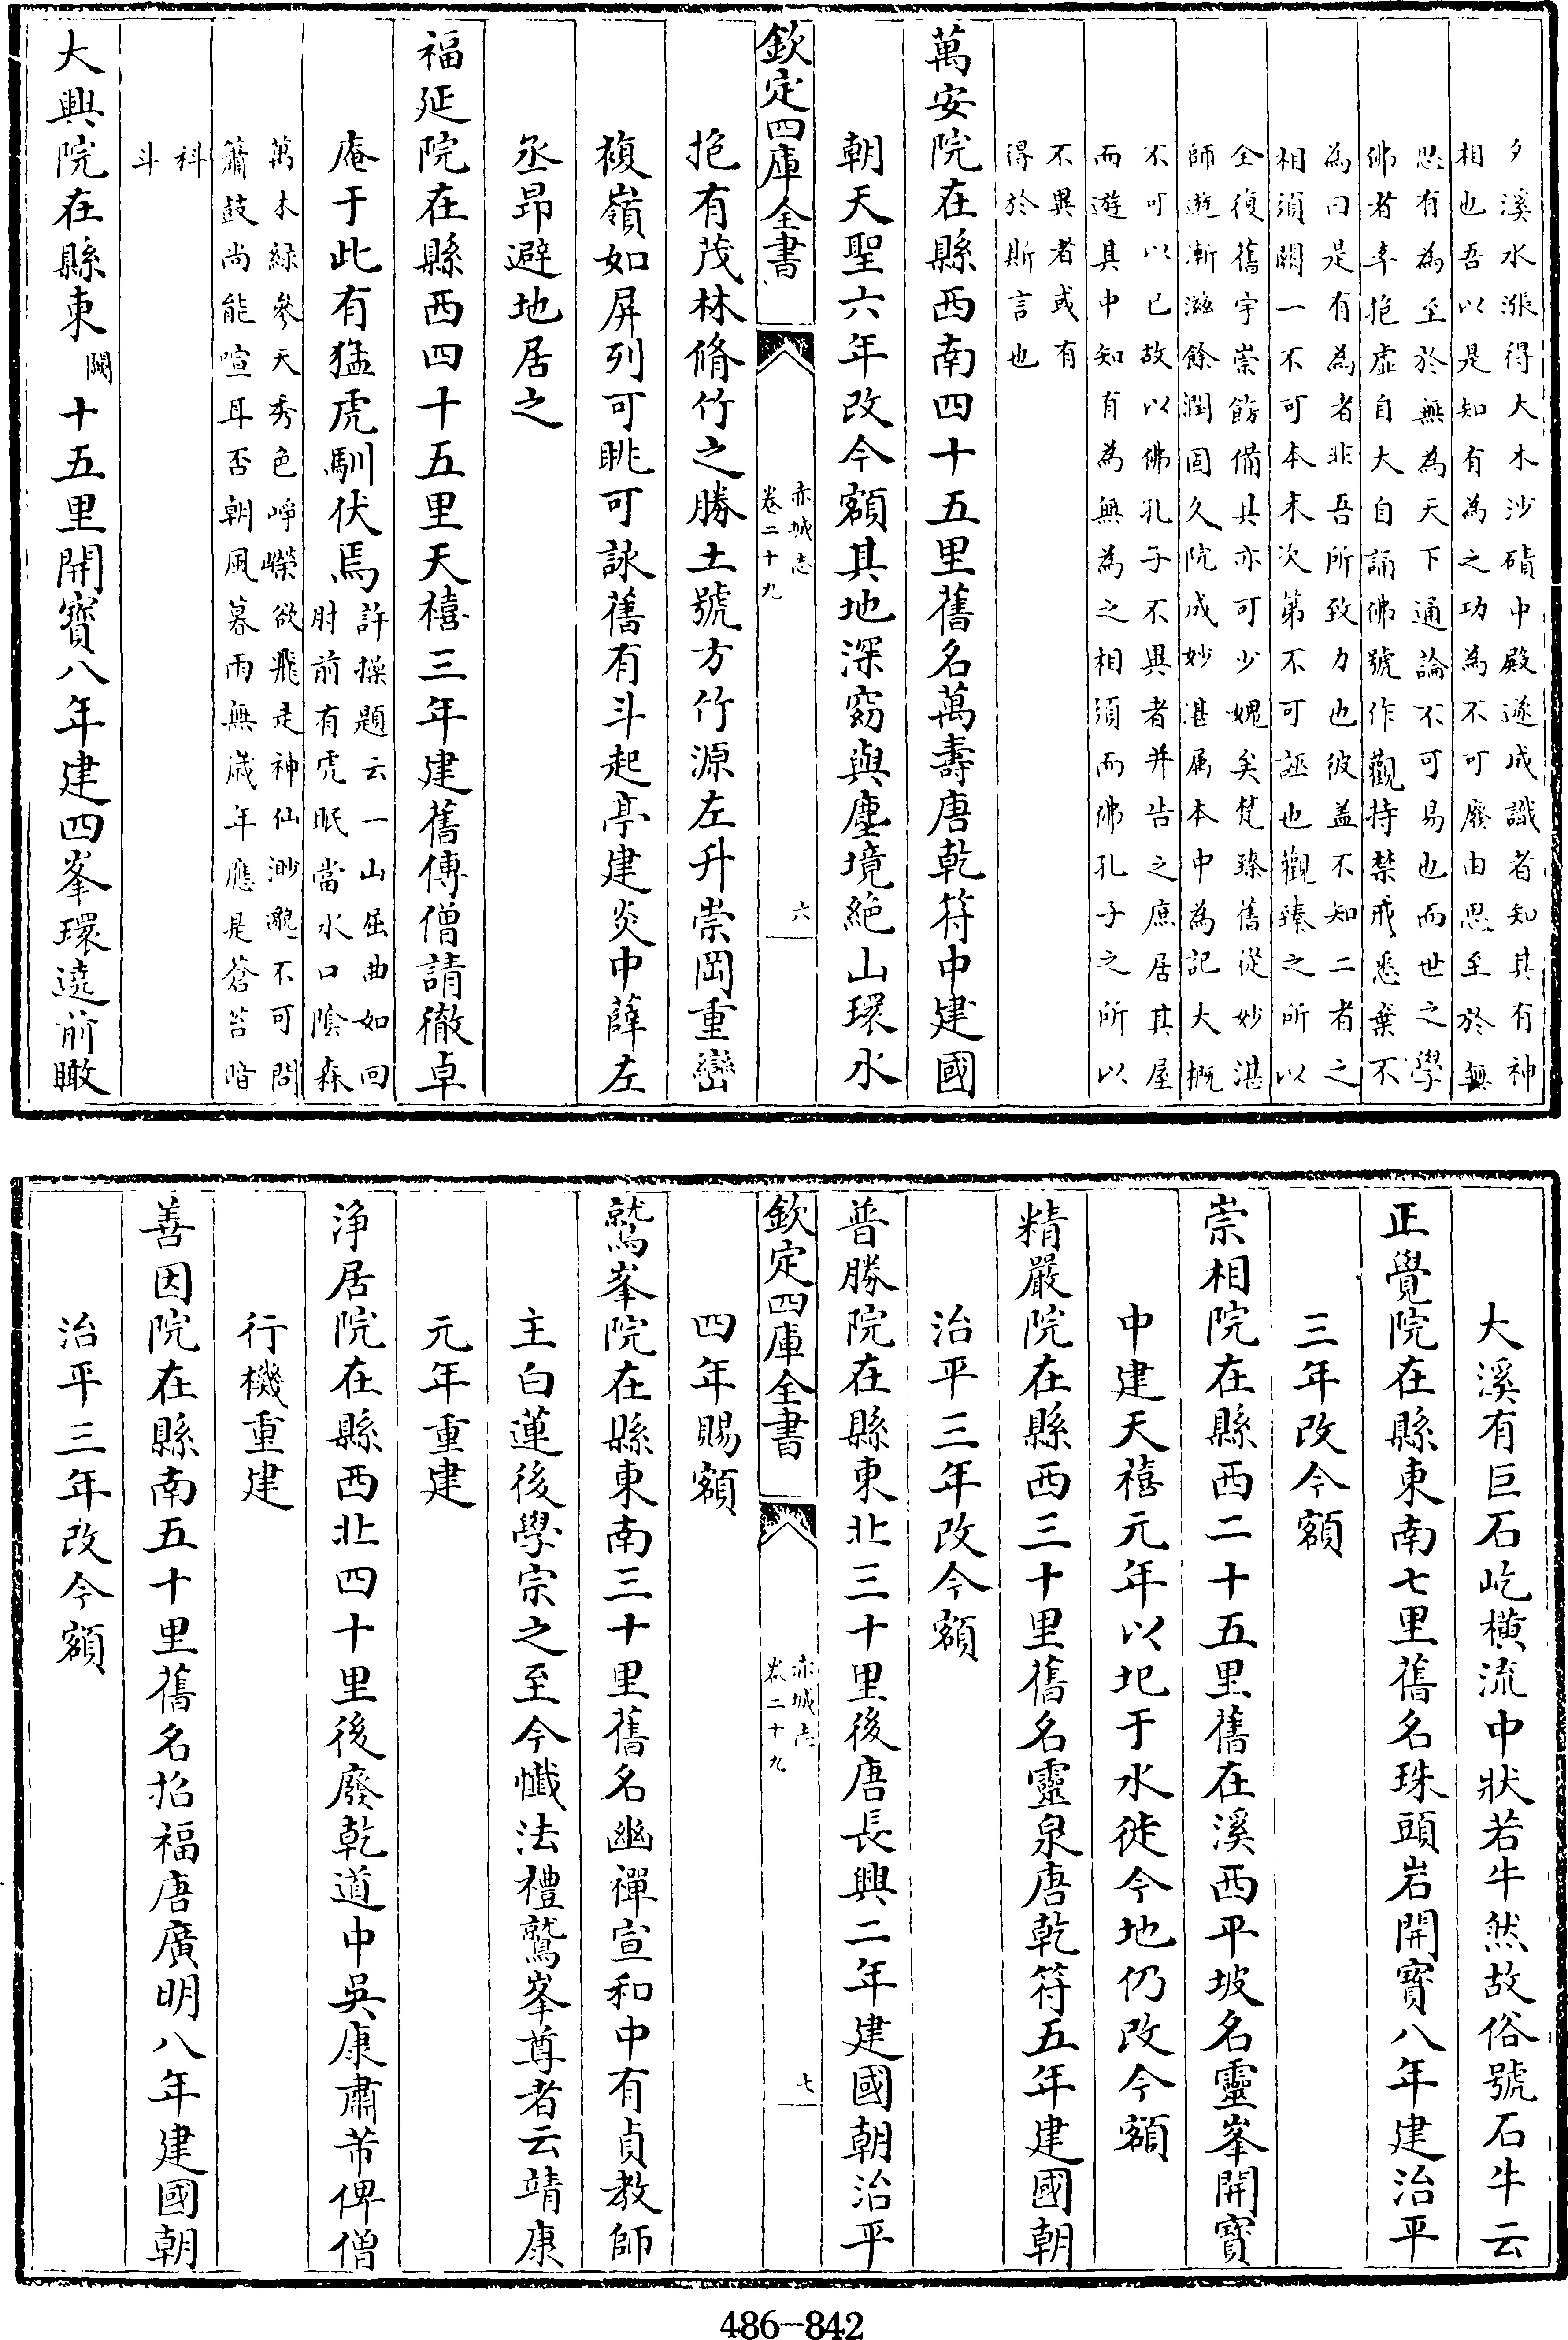 夕溪水漲得大木沙磧中殿遂成識者知其有神
相也吾以是知有為之功為不可廢由思至於無
思有為至於無為天下通論不可易也而世之學
佛者率抱虛自大自誦佛號作觀持禁戒悉棄不
為曰是有為者非吾所致力也彼蓋不知二者之
相須闕一不可本末次第不可誣也觀臻之所以
全復舊宇崇飭備具亦可少媿矣梵臻舊從妙湛
師遊漸滋餘潤固久院成妙湛属本中為記大概
不可以已故以佛孔子不異者并告之庶居其屋
而遊其中知有為無為之相須而佛孔子之所以
不異者或有
得於斯言也
萬安院在縣西南四十五里舊名萬壽唐乾符中建國
朝天聖六年改今額其地深窈與塵境絕山環水
抱有茂林脩竹之勝土號方竹源左升崇岡重巒
複嶺如屏列可眺可詠舊有斗起亭建炎中薛左
丞昂避地居之
福延院在縣西四十五里天禧三年建舊傳僧請徹卓
庵于此有猛虎馴伏焉
許操題云一山屈曲如回
肘前有虎眠當水口陰森
萬木緑參天秀色崢嶸欲飛走神仙渺邈不可問
簫鼓尚能喧耳否朝風暮雨無歲年應是蒼苔暗
科
斗
大興院在縣東闕十五里開寶八年建四峯環遶前瞰
欽定四庫全書
赤城志
卷二十九
六
大溪有巨石屹橫流中狀若牛然故俗號石牛云
正覺院在縣東南七里舊名珠頭岩開寶八年建治平
三年改今額
崇相院在縣西二十五里舊在溪西平坡名靈峯開寶
中建天禧元年以圮于水徙今地仍改今額
精嚴院在縣西三十里舊名靈泉唐乾符五年建國朝
治平三年改今額
普勝院在縣東北三十里後唐長興二年建國朝治平
四年賜額
鷲峯院在縣東南三十里舊名幽禪宣和中有貞教師
主白蓮後學宗之至今懺法禮鷲峯尊者云靖康
元年重建
淨居院在縣西北四十里後廢乾道中吳康肅芾俾僧
行機重建
善因院在縣南五十里舊名招福唐廣明八年建國朝
治平三年改今額
欽定四庫全書
赤城志
卷二十九
七
486-842